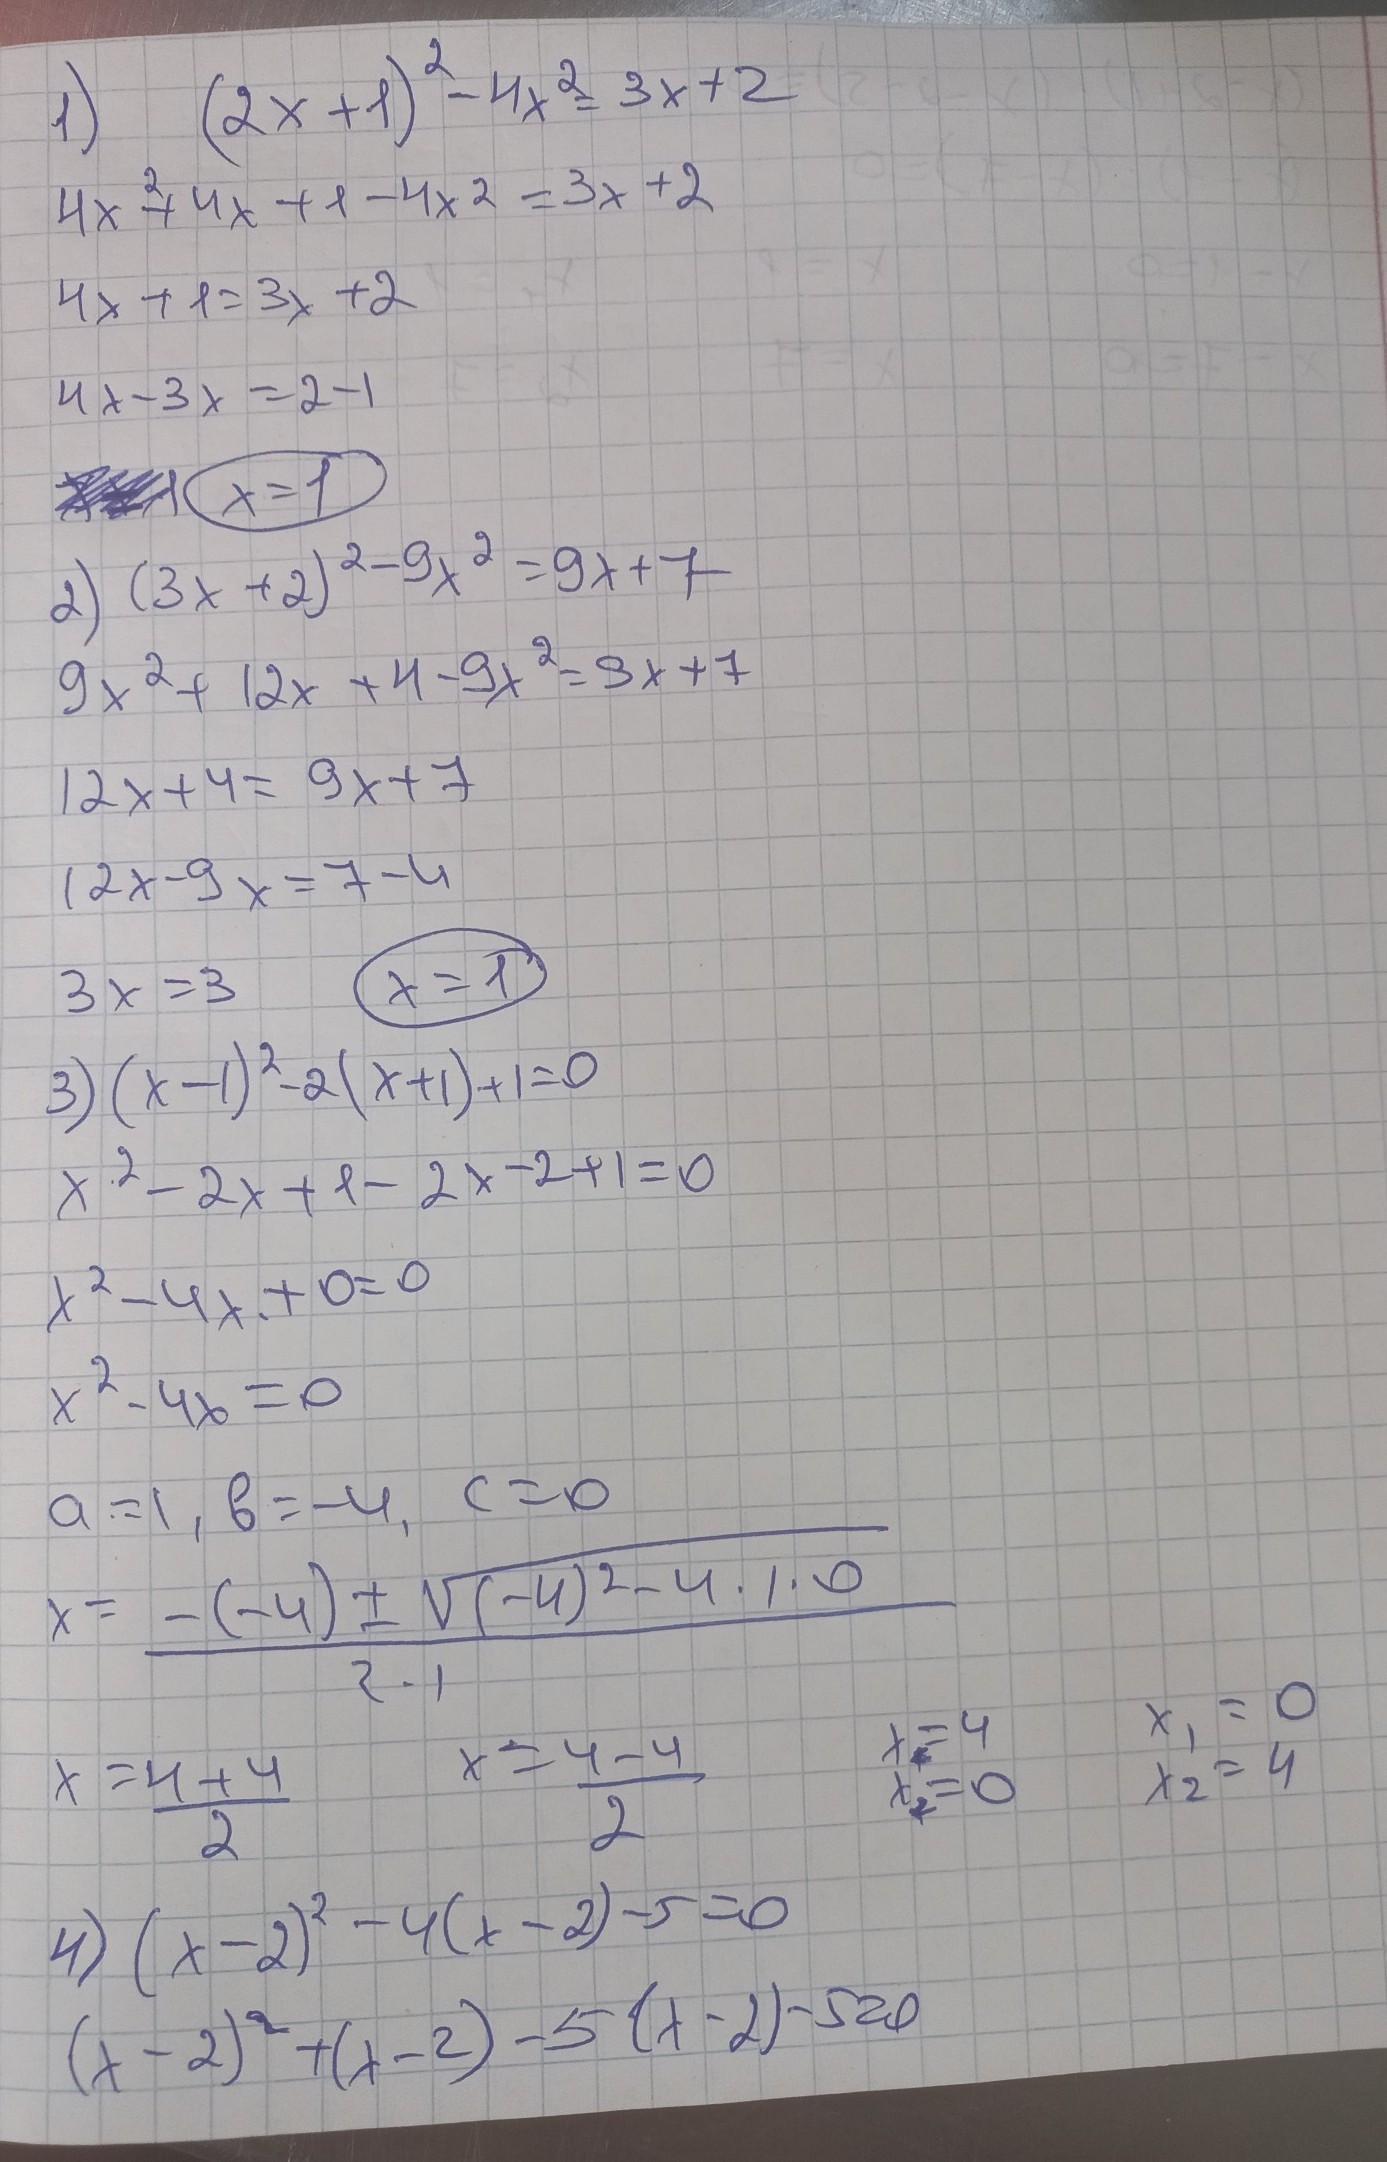 1) (2x+1)² - 4x² = 3x+2
4x² + 4x + 1 - 4x2 = 3x + 2
4x + 1 = 3x + 2
4x - 3x = 2 - 1
x = 1
2) (3x+2)² - 9x² = 9x + 7
9x² + 12x + 4 - 9x² = 9x + 7
12x + 4 = 9x + 7
12x - 9x = 7 - 4
3x = 3 x = 1
3) (x-1)² - 2(x+1) + 1 = 0
x² - 2x + 1 - 2x - 2 + 1 = 0
x² - 4x + 0 = 0
x² - 4x = 0
a = 1, в = -4, c = 0
x = (-(-4) ± √((-4)² - 4·1·0)) / (2·1)
x = (4+4)/2 x = (4-4)/2 x = 4 x₁ = 0
x = 0 x₂ = 4
4) (x-2)² - 4(x-2) - 5 = 0
(x-2)² + (x-2) - 5(x-2) - 5=0